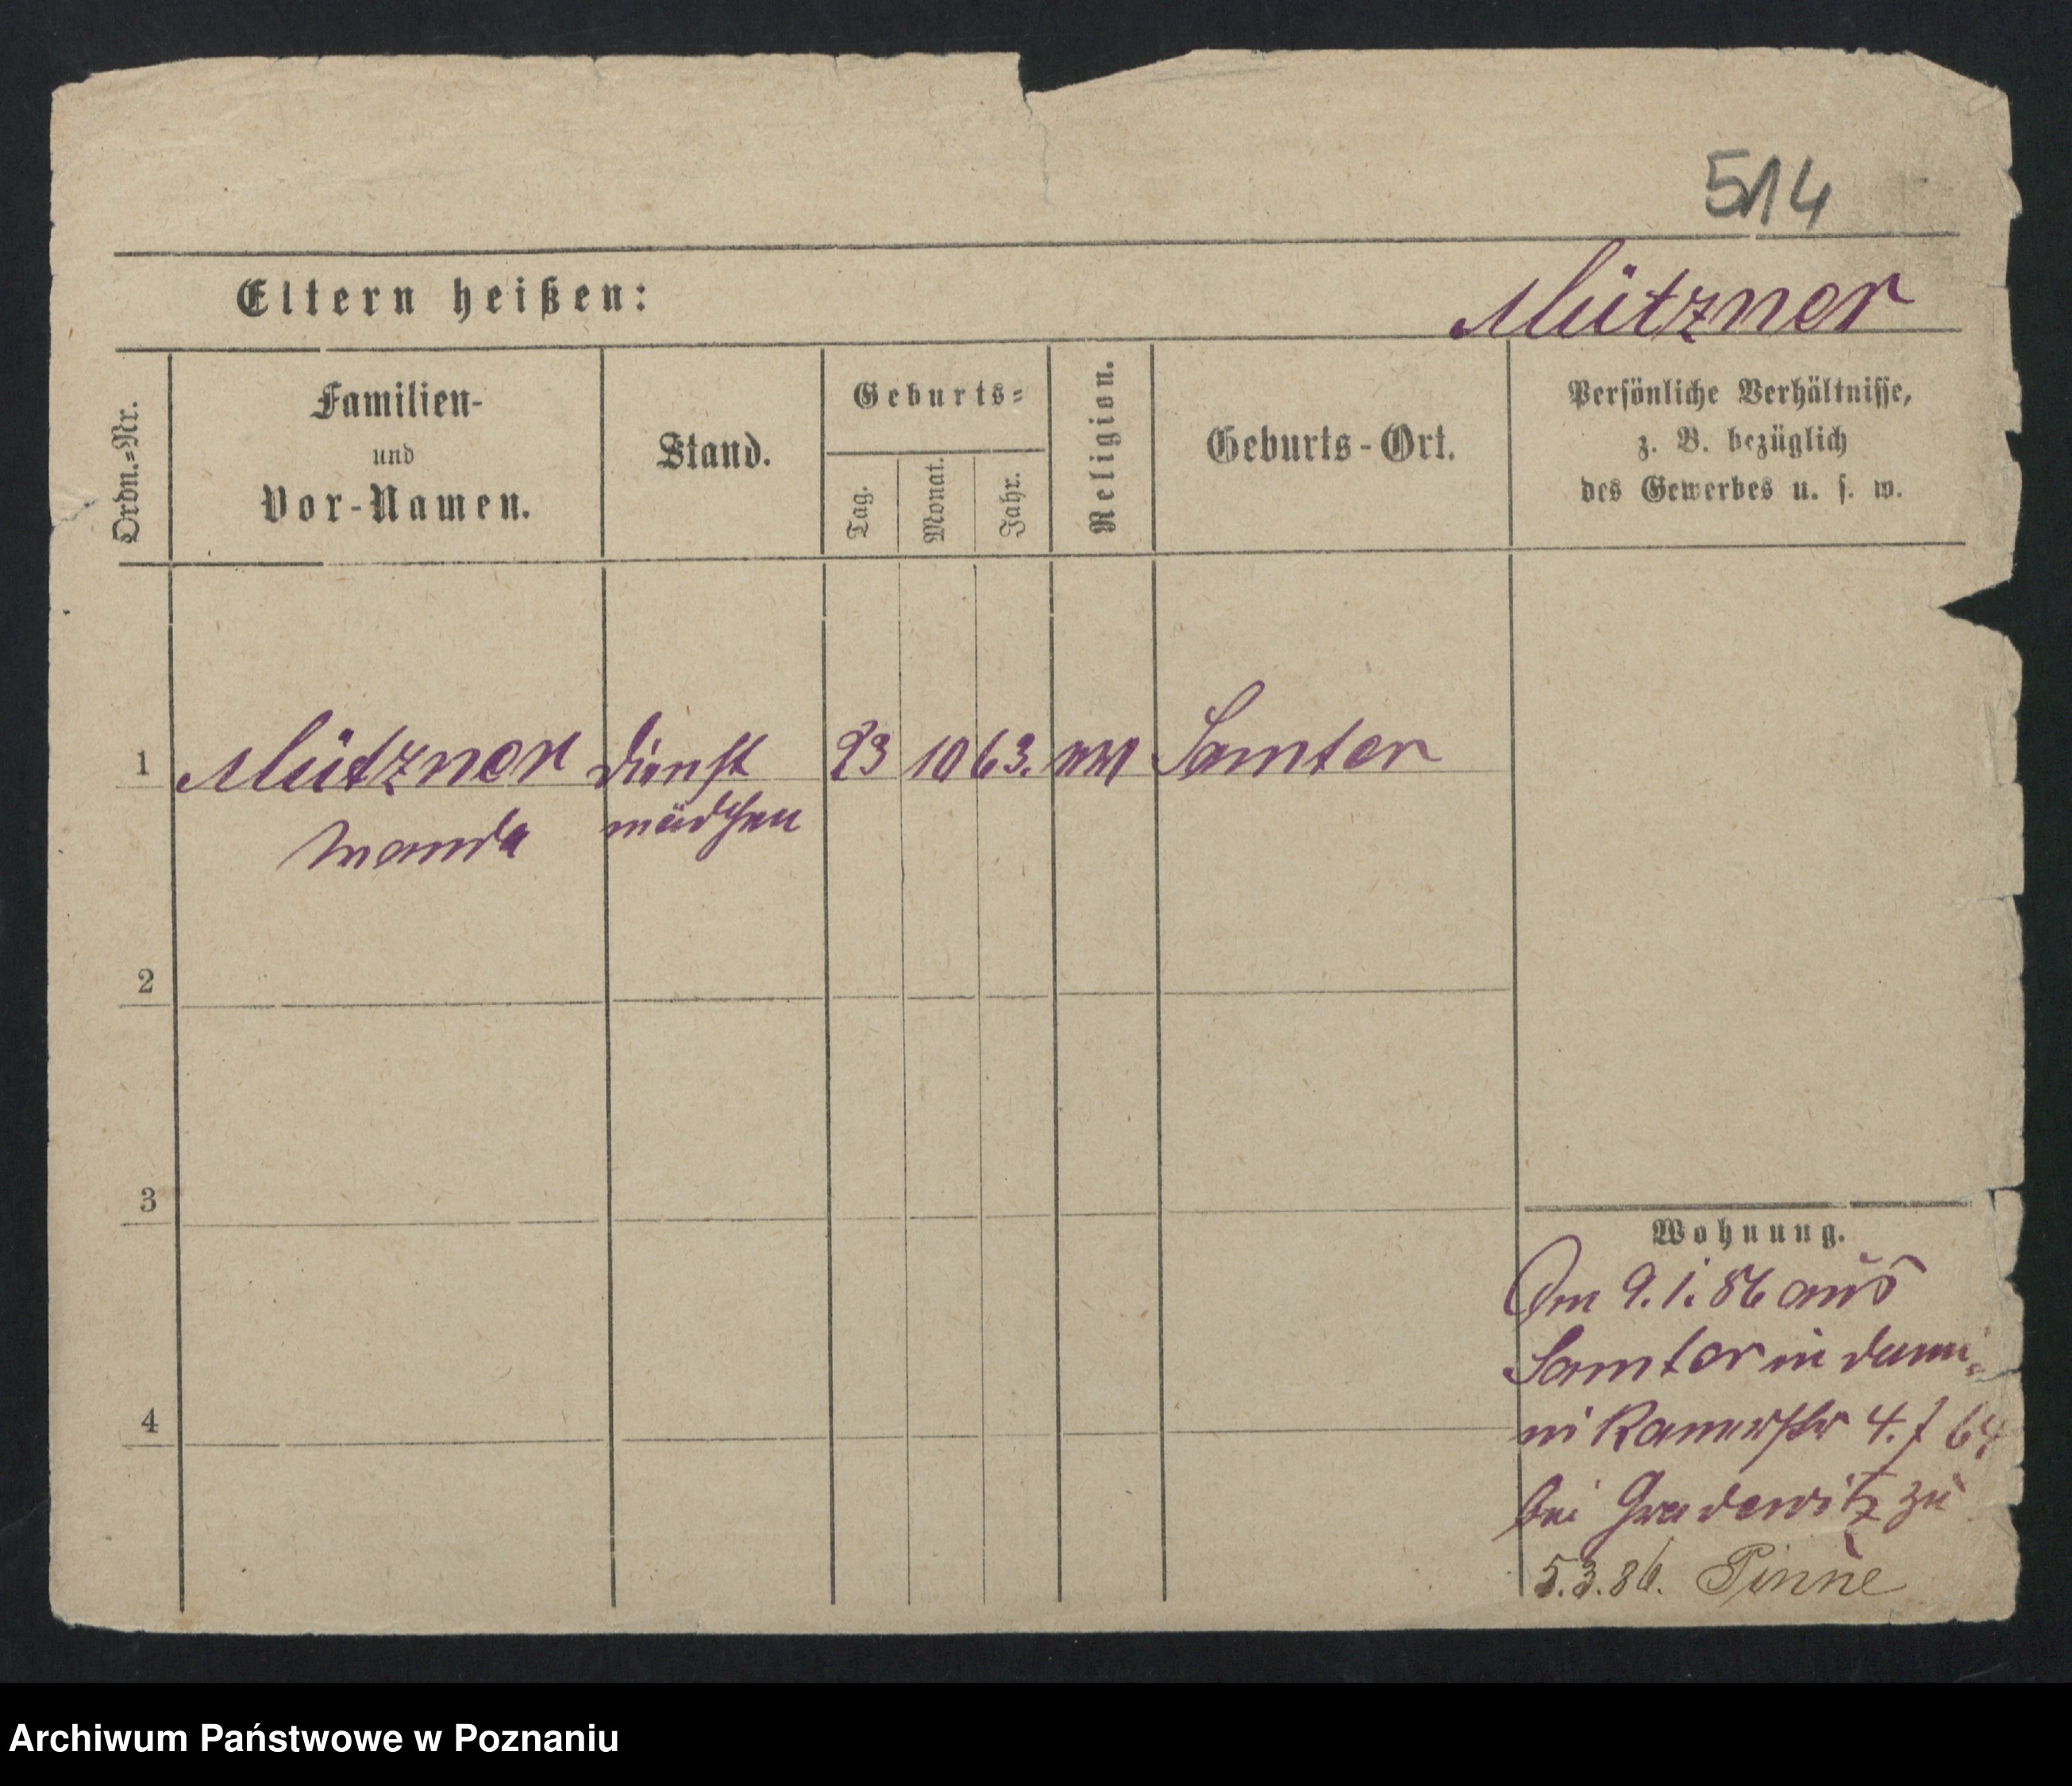 514
Eltern heißen:
Mützner
Ordn.=Nr.
Familien-
und
Vor-Namen.
Stand.
Geburts=
Tag.
Monat.
Jahr.
Religion.
Geburts-Ort.
Persönliche Verhältnisse,
z. B. bezüglich
des Gewerbes u. s. w.
1 Mützner Dienst 23 10 63. Samter
Wanda mädchen
2
3
4
Wohnung.
Am 9.1.86 aus
Samter in
4.
bei zu
5.3.86. Pinne
Archiwum Państwowe w Poznaniu